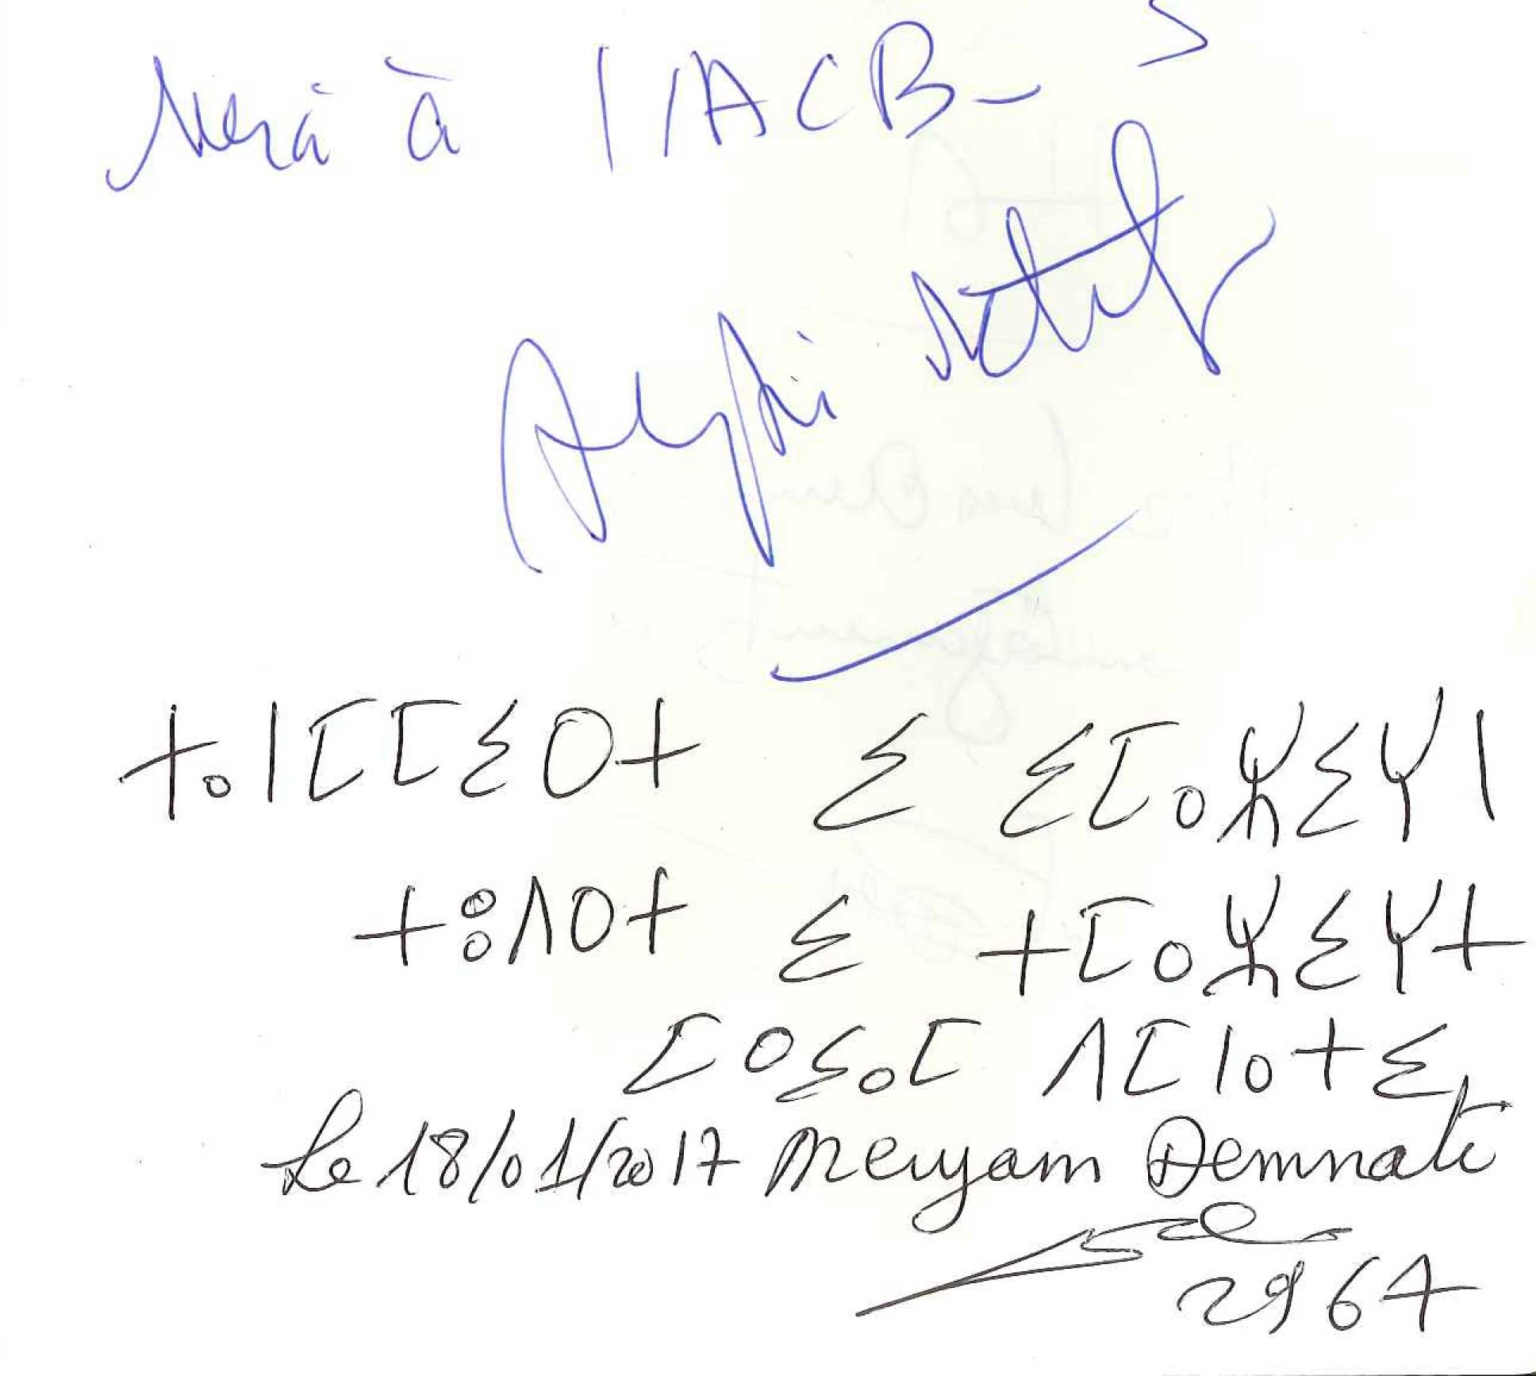 Merci à l'ACB-
ⵜⴰⵏⵎⵎⵉⵔⵜ ⵉ ⵉⵎⴰⵣⵉⵖⵏ
ⵜⵓⴷⵔⵜ ⵉ ⵜⵎⴰⵣⵉⵖⵜ
ⵎⵔⵢⴰⵎ ⴷⵎⵏⴰⵜⵉ
Le 18/01/2017 Meryam Demnati
2967